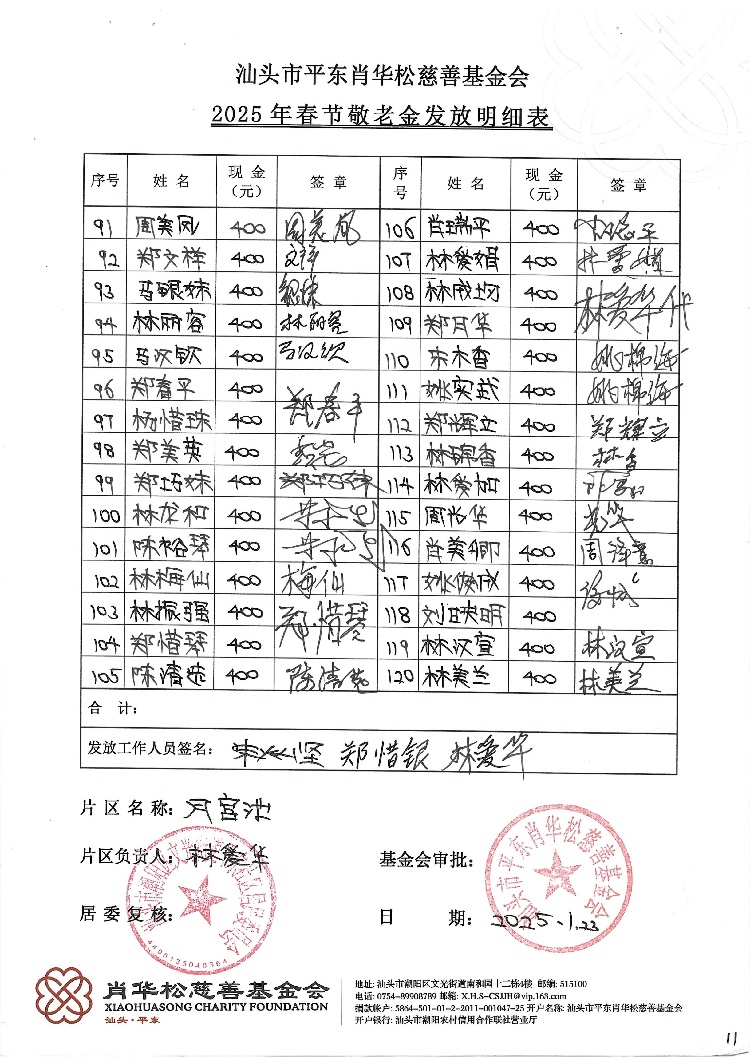 汕头市平东肖华松慈善基金会
2025年春节敬老金发放明细表
序号 姓名 现金(元) 签章 序号 姓名 现金(元) 签章
91 周美凤 400 周美凤 106 肖瑞平 400
92 郑文祥 400 文祥 107 林爱娟 400
93 马银妹 400 银妹 108 400 林爱华代
94 林丽容 400 林丽容 109 郑月华 400
95 马汉钦 400 马汉钦 110 宋木香 400 姚棉海
96 郑春平 400 郑春平 111 姚实武 400 姚棉海
97 杨惜珠 400 112 郑辉立 400 郑辉立
98 郑美英 400 113 林琼香 400 林香
99 郑巧妹 400 郑巧妹 114 400
100 林龙 400 115 周怡华 400
101 陈裕琴 400 116 肖美卿 400
102 林梅仙 400 梅仙 117 姚俊成 400
103 林振强 400 郑惜琴 118 刘映明 400
104 郑惜琴 400 119 林汉宣 400 林汉宣
105 陈清 400 陈清 120 林美兰 400 林美兰
合 计:
发放工作人员签名: 坚 郑惜银 林爱华
片区名称: 月宫池
片区负责人: 林爱华
基金会审批:
居委复核:
日 期: 2025.1.23
汕头市平东肖华松慈善基金会
4405135040364
肖华松慈善基金会
XIAOHUASONG CHARITY FOUNDATION
汕头·平东
地址: 汕头市潮阳区文光街道南和园十二栋4楼 邮编: 515100
电话: 0754-89908789 邮箱: X.H.S-CSJJH@vip.163.com
捐款帐户: 5864-501-01-2-2011-001047-25 开户名称: 汕头市平东肖华松慈善基金会
开户银行: 汕头市潮阳农村信用合作联社营业厅
11